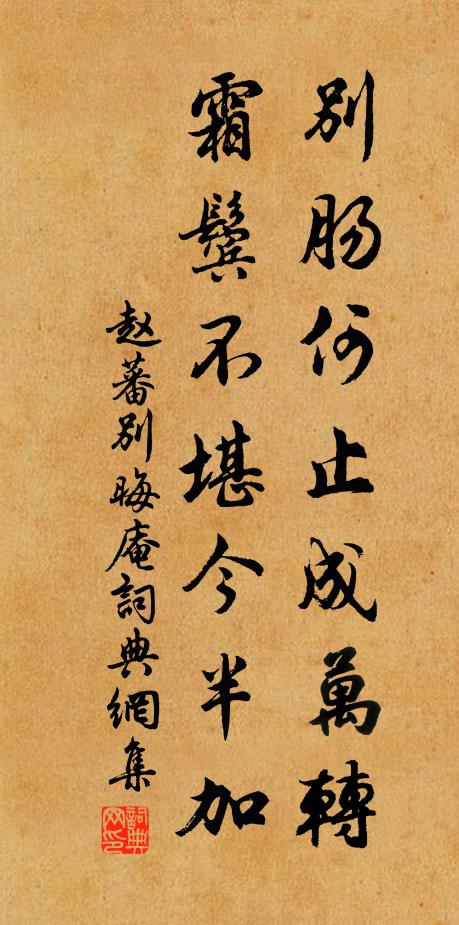 別腸何止成萬轉
霜鬢不堪今半加
趙蕃別晦庵詞典網集
詞典網印